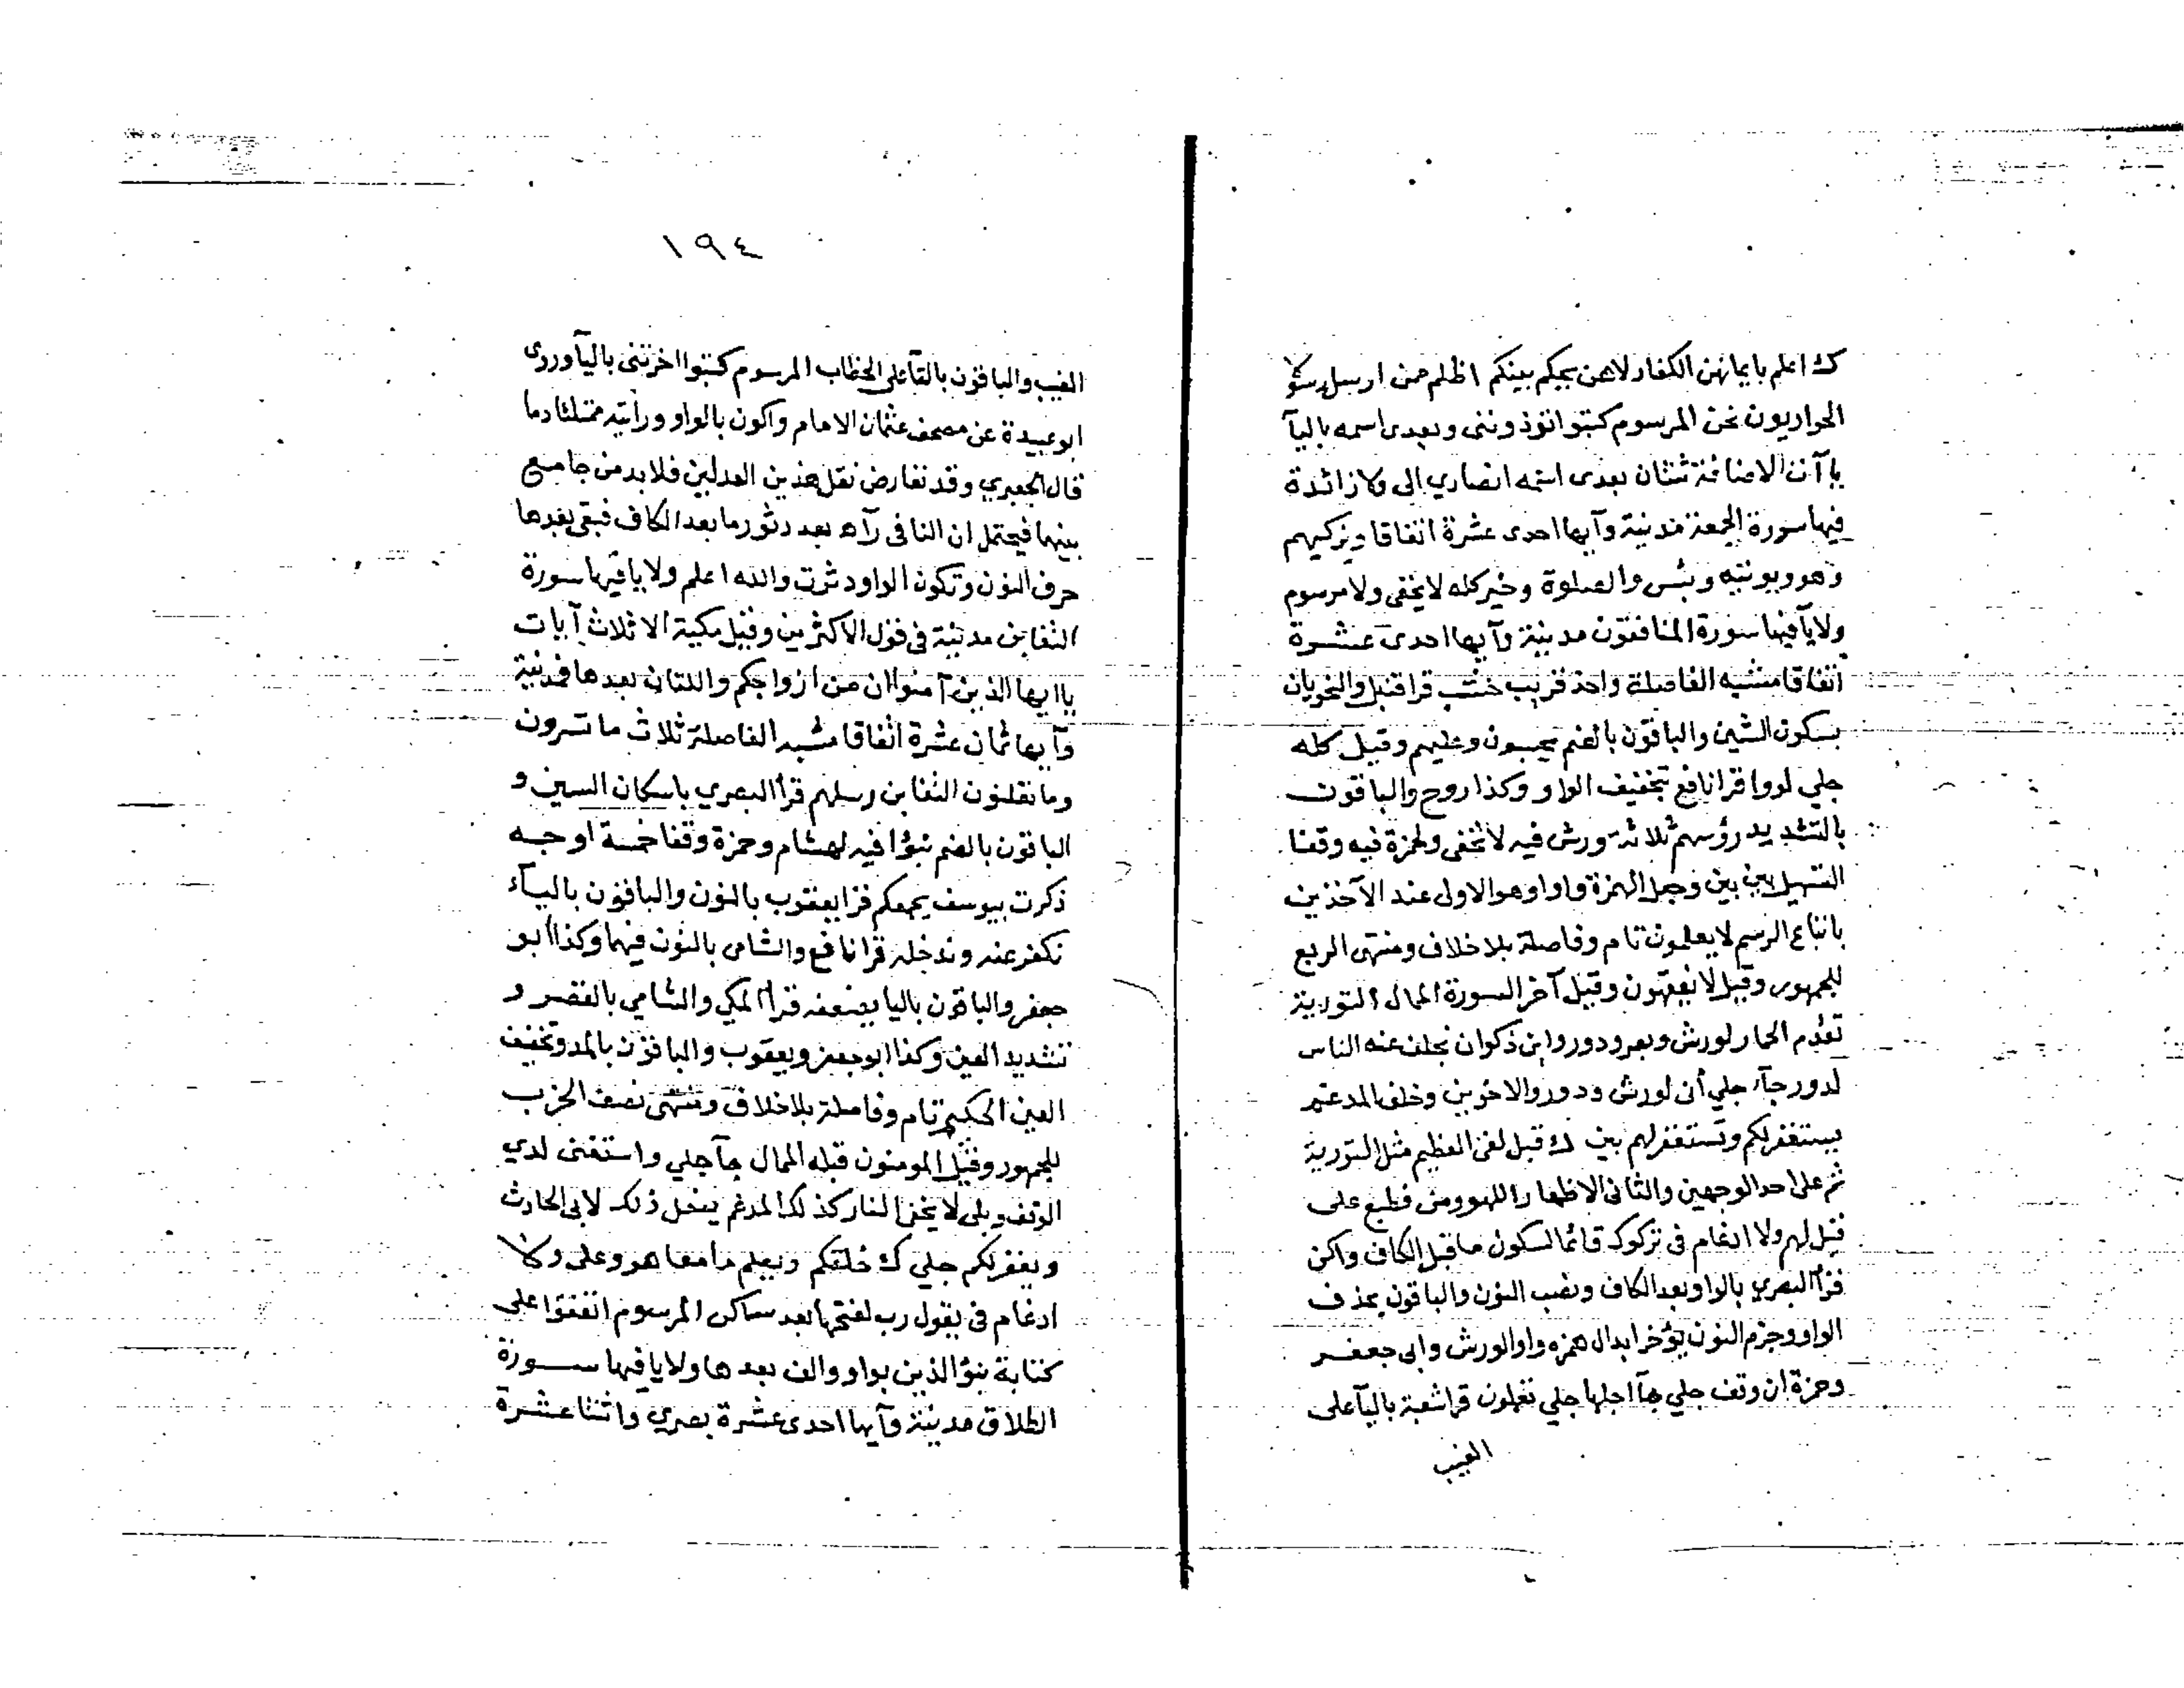 ك اعلم بايمانهن الكفار لاهن يحكم بينكم اظلم ممن ارسل رسوله
الحواريون نحن المرسوم كتبوا تؤذونني وبعدي اسمه باليآ
يآآت الاضافة ثنتان بعدى اسمه انصاري الى ولا زائدة
فيها سورة الجمعة مدنية وآيها احدى عشرة اتفاقا ويزكيهم
وهو ويوتيه وبئس والصلوة وخير كله لا يخفى ولا مرسوم
ولا يآ فيها سورة المنافقون مدينة وآيها احدى عشرة
اتفاقا مشبه الفاصلة واحد قريب خشب قرا قنبل والنحويان
بسكون الشين والباقون بالضم يحسبون وعليهم وقيل كله
جلي لووا قرا نافع بتخفيف الواو وكذا روح والباقون
بالتشديد رؤسهم ثلاثة ورش فيه لا تخفى ولحمزة فيه وقفا
التسهيل بين بين وجعل الهمزة واوا وهو الاولى عند الآخذين
باتباع الرسم لا يعلمون تام وفاصلة بلا خلاف ومنتهى الربع
للجمهور وقيل لا يفقهون وقيل آخر السورة الممال التورية
تقدم الحمار لورش وبصر ودور وابن ذكوان بخلف عنه الناس
لدور جآء جلي أنى لورش ودور والاخوين وخلف المدغم
يستغفر لكم وتستغفر لهم بين ك قبل لفى العظيم مثل التورية
ثم على احد الوجهين والثانى الاظهار اللهو ومن فطبع على
قيل لهم ولا ادغام فى تركوك قائما لسكون ما قبل الكاف واكن
قرأ البصري بالواو بعد الكاف ونصب النون والباقون بحذف
الواو وجزم النون يؤخر ابدال همزه واوا لورش وابى جعفر
وحمزة ان وقف جلي جآ اجلها جلي تعملون قرا شعبة باليآ على
الغيب
١٩٤
الغيب والباقون بالتآ على الخطاب المرسوم كتبوا اخرتنى باليآ وروى
ابو عبيدة عن مصحف عثمان الامام واكون بالواو ورأيته ممتلئا دما
قال الجعبري وقد تعارض نقل هذين العدلين فلا بد من جامع
بينهما فيحتمل ان النافى رآه بعد دثور ما بعد الكاف فبقى بعدها
حرف النون وتكون الواو دثرت والله اعلم ولا يا فيها سورة
التغابن مدنية فى قول الاكثرين وقيل مكية الا ثلاث آيات
ياايها الذين آمنوا ان من ازواجكم واللتان بعدها فمدنية
وآيها ثمان عشرة اتفاقا مشبه الفاصلة ثلاث ما تسرون
وما تعلنون التغابن رسلهم قرأ البصري باسكان السين و
الباقون بالضم نبؤا فيه لهشام وحمزة وقفا خمسة اوجه
ذكرت بيوسف يجمعكم قرا يعقوب بالنون والباقون باليآء
نكفر عنه وندخله قرا نافع والشامى بالنون فيهما وكذا ابو
جعفر والباقون باليا يضعفه قرا المكي والشامي بالقصر و
تشديد العين وكذا ابو جعفر ويعقوب والباقون بالمد وتخفيف
العين الحكيم تام وفاصلة بلا خلاف ومنتهى نصف الحزب
للجمهور وقيل المومنون قبله الممال جآ جلي واستغنى لدي
الوقف وبلى لا يخفى النار كذلك المدغم يفعل ذلك لابى الحارث
ويغفر لكم جلي ك خلقكم ويعلم ما معا هو وعلى ولا
ادغام فى يقول رب لفتحها بعد ساكن المرسوم اتفقوا على
كتابة نبؤا الذين بواو والف بعدها ولا يا فيها سورة
الطلاق مدنية وآيها احدى عشرة بصري واثنتا عشرة